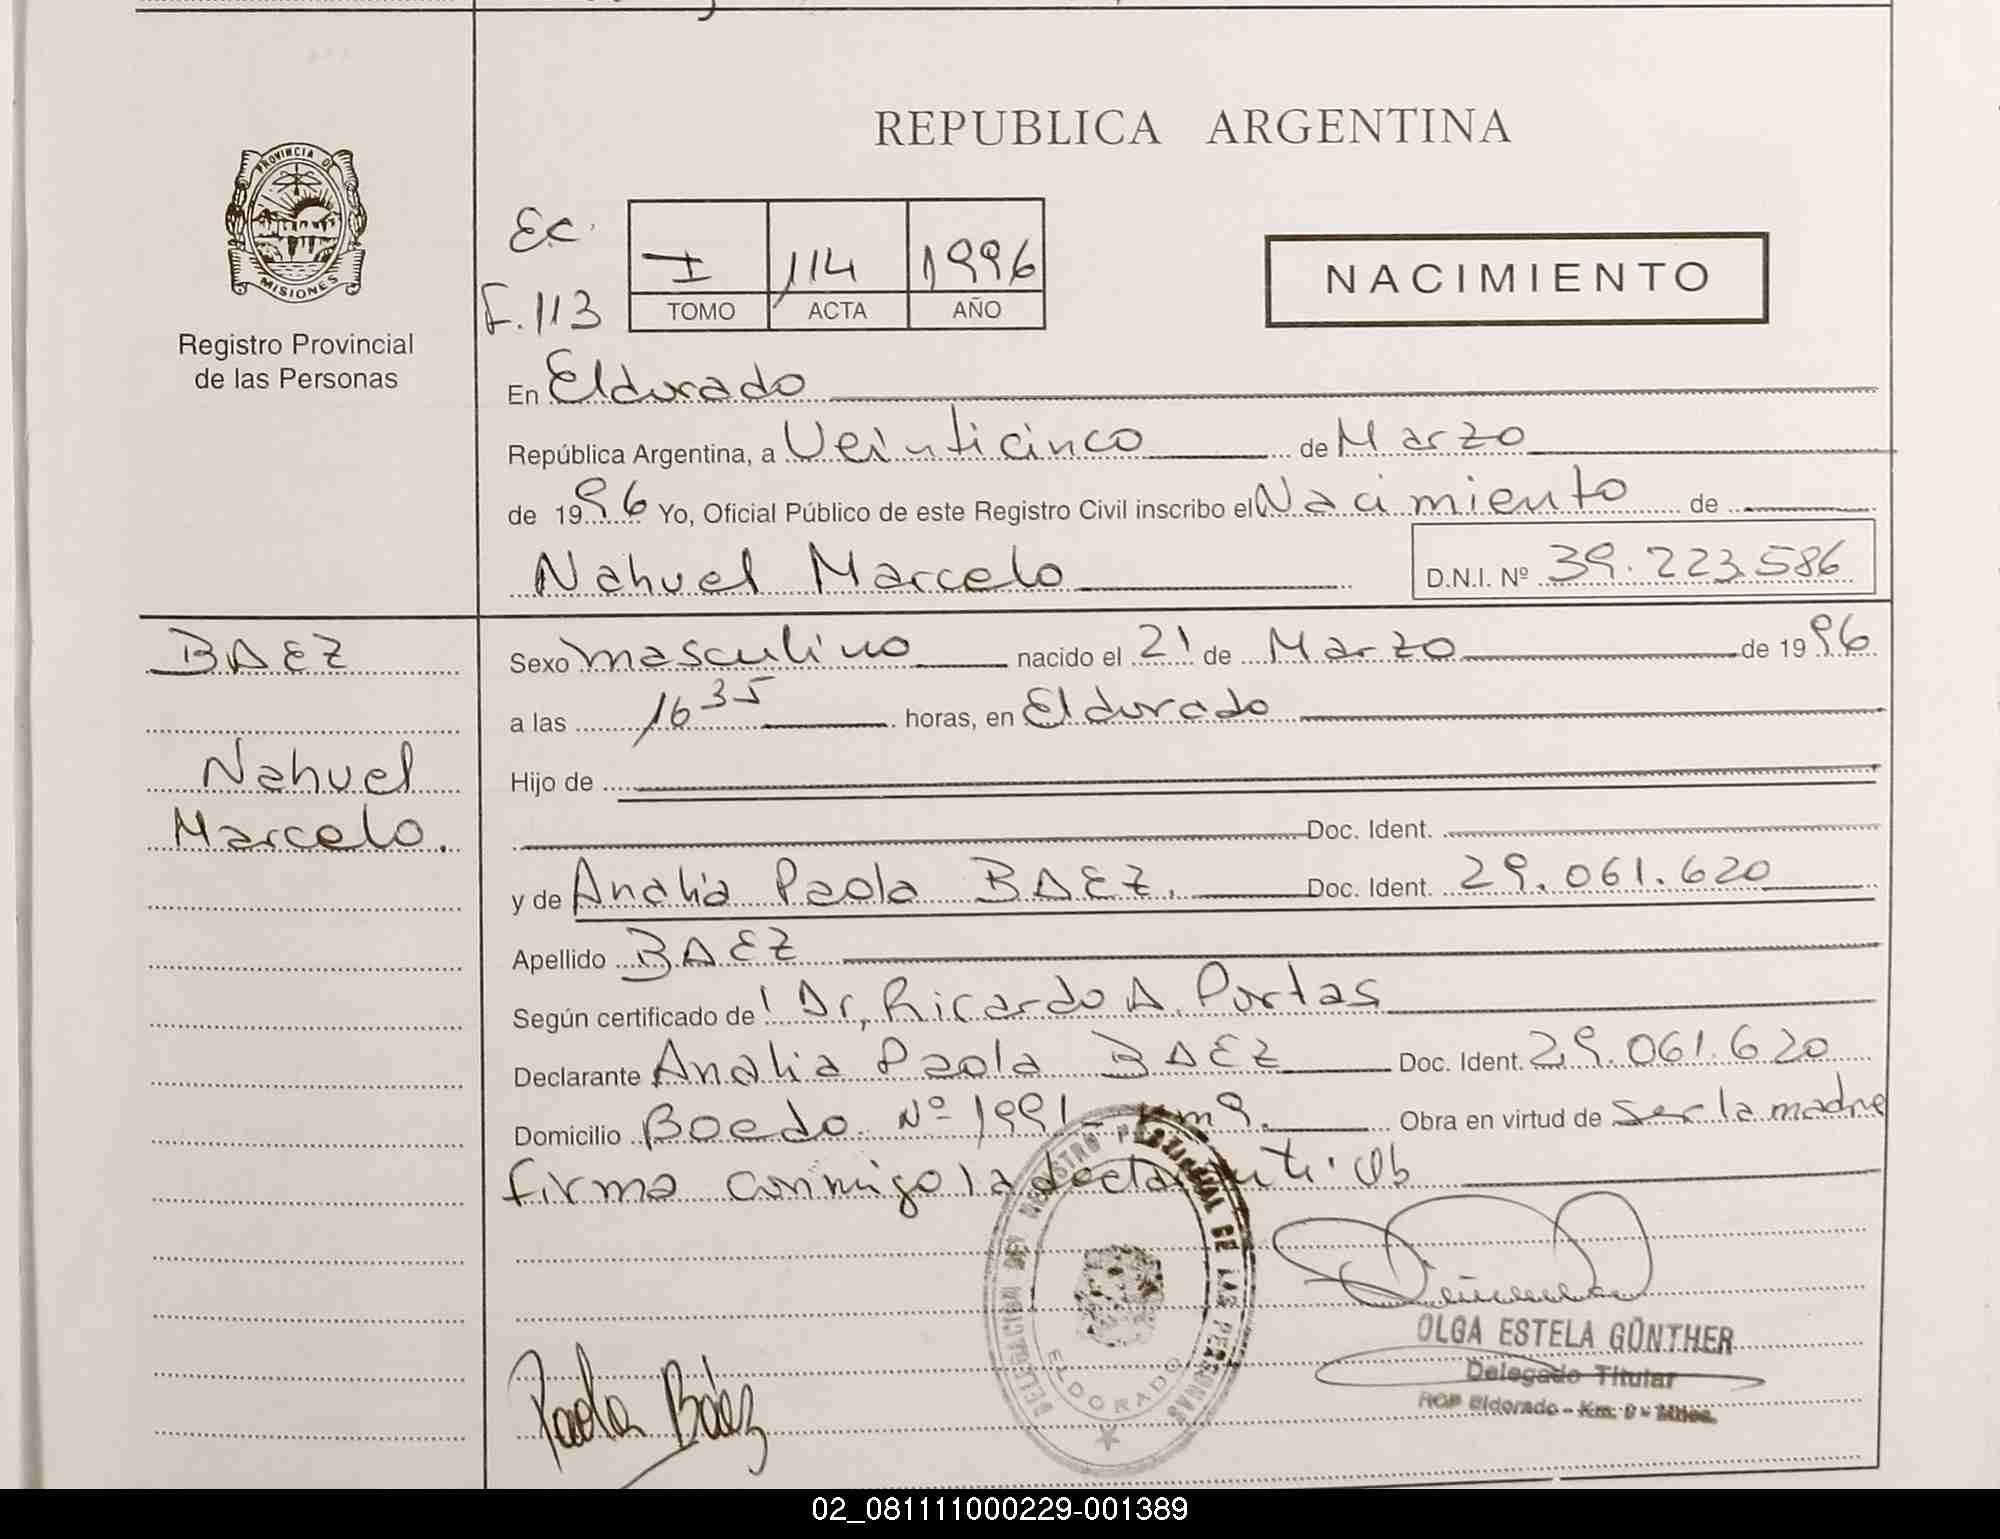 REPUBLICA ARGENTINA
PROVINCIA DE
MISIONES
Registro Provincial
de las Personas
Ec.
F.113
I 114 1996
TOMO ACTA AÑO
NACIMIENTO
En Eldorado
República Argentina, a Veinticinco de Marzo
de 1996 Yo, Oficial Público de este Registro Civil inscribo el Nacimiento de
Nahuel Marcelo D.N.I. Nº 39.223.586
BAEZ
Nahuel
Marcelo.
Sexo masculino nacido el 21 de Marzo de 1996
a las 16 35 horas, en Eldorado
Hijo de
Doc. Ident.
y de Analia Paola BAEZ. Doc. Ident. 29.061.620
Apellido BAEZ
Según certificado de Dr, Ricardo A. Portas
Declarante Analia Paola BAEZ Doc. Ident. 29.061.620
Domicilio Boedo Nº 1991- Km 9. Obra en virtud de ser la madre
firma conmigo la declarante.
DELEGACION DEL REGISTRO PROVINCIAL DE LAS PERSONAS
ELDORADO
OLGA ESTELA GÜNTHER
Delegado Titular
RCP Eldorado - Km. 9 - Mnes.
Paola Báez
02_081111000229-001389